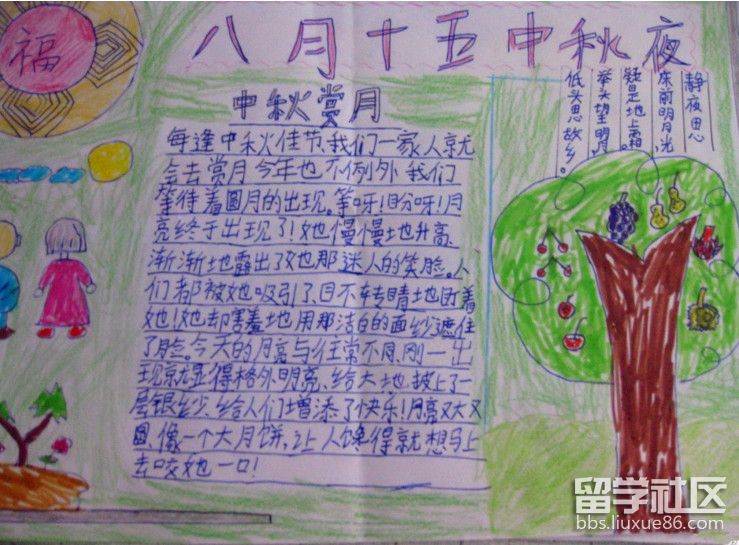 福
八月十五中秋夜
中秋赏月
每逢中秋佳节,我们一家人就
会去赏月今年也不例外,我们
等待着圆月的出现。等呀!盼呀!月
亮终于出现了!她慢慢地升高、
渐渐地露出了她那迷人的笑脸。人
们都被她吸引了、目不转睛地盯着
她!她却害羞地用那洁白的面纱遮住
了脸。今天的月亮与往常不同,刚一出
现就显得格外明亮、给大地披上了一
层银纱、给人们增添了快乐!月亮又大又
圆、像一个大月饼,让人馋得就想马上
去咬她一口!
静夜思
床前明月光,
疑是地上霜。
举头望明月
低头思故乡。
留学社区
bbs.liuxue86.com